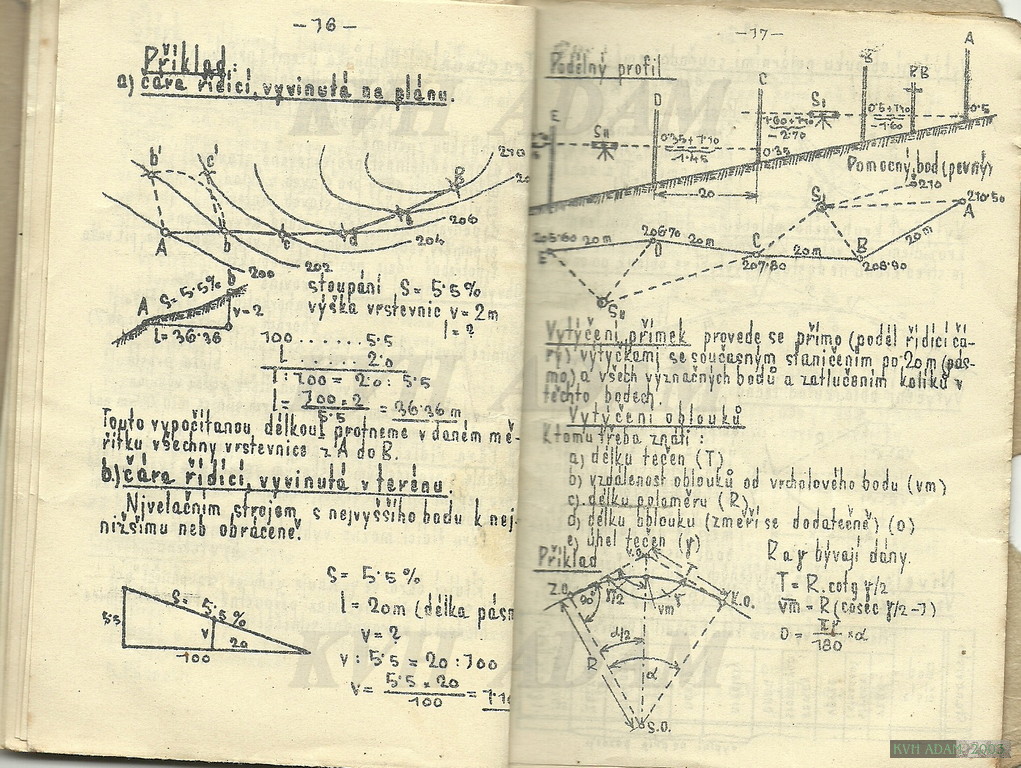 -16-
Příklad:
a) čára řídící, vyvinutá na plánu.
b' c'
210
B
206
204
A b c d
202
200
S= 5·5% b
A
v=2
l=36·36
stoupání S= 5·5%
výška vrstevnic v= 2m
l= ?
100 ...... 5·5
l ...... 2·0
l : 100 = 2·0 : 5·5
l= 100×2 / 5·5 = 36·36 m
Touto vypočítanou délkou protneme v daném mě-
řítku všechny vrstevnice z A do B.
b) čára řídící, vyvinutá v terénu.
Nivelačním strojem, s nejvyššího bodu k nej-
nižšímu neb obráceně.
S= 5·5%
5·5 v 20
100
S= 5·5 %
l= 20m (délka pásm
v= ?
v : 5·5 = 20 : 100
v= 5·5 × 20 / 100 = 1·10
-17-
Podélný profil
A
B
P.B
C
D
E
SII
SI
0·35+1·10
-1·45
1·60+1·10
-2·70
0·5+1·10
-1·60
0·5
0·35
20
Pomocný bod (pevný)
210
SI
210·50
A
205·60 20m 206·70 20m C 20m B 20m
E D 207·80 208·90
SII
Vytýčení přímek provede se přímo (podél řídící čá-
ry) výtyčkami se současným staničením po 20m (pás-
mo) a všech význačných bodů a zatlučením kolíků v
těchto bodech.
Vytýčení oblouků
K tomu třeba znáti :
a) délku tečen (T)
b) vzdálenost oblouků od vrcholového bodu (vm)
c) délku poloměru (R)
d) délku oblouku (změří se dodatečně) (o)
e) úhel tečen (γ)
Příklad
R a γ bývají dány.
T= R. cotg γ/2
vm = R (cosec γ/2 -1)
O = πr / 180 × α
V.B.
T
Z.O. 90° γ/2 vm γ K.O.
α/2
R α
S.O.
KVH ADAM
KVH ADAM
KVH ADAM
KVH ADAM 2005